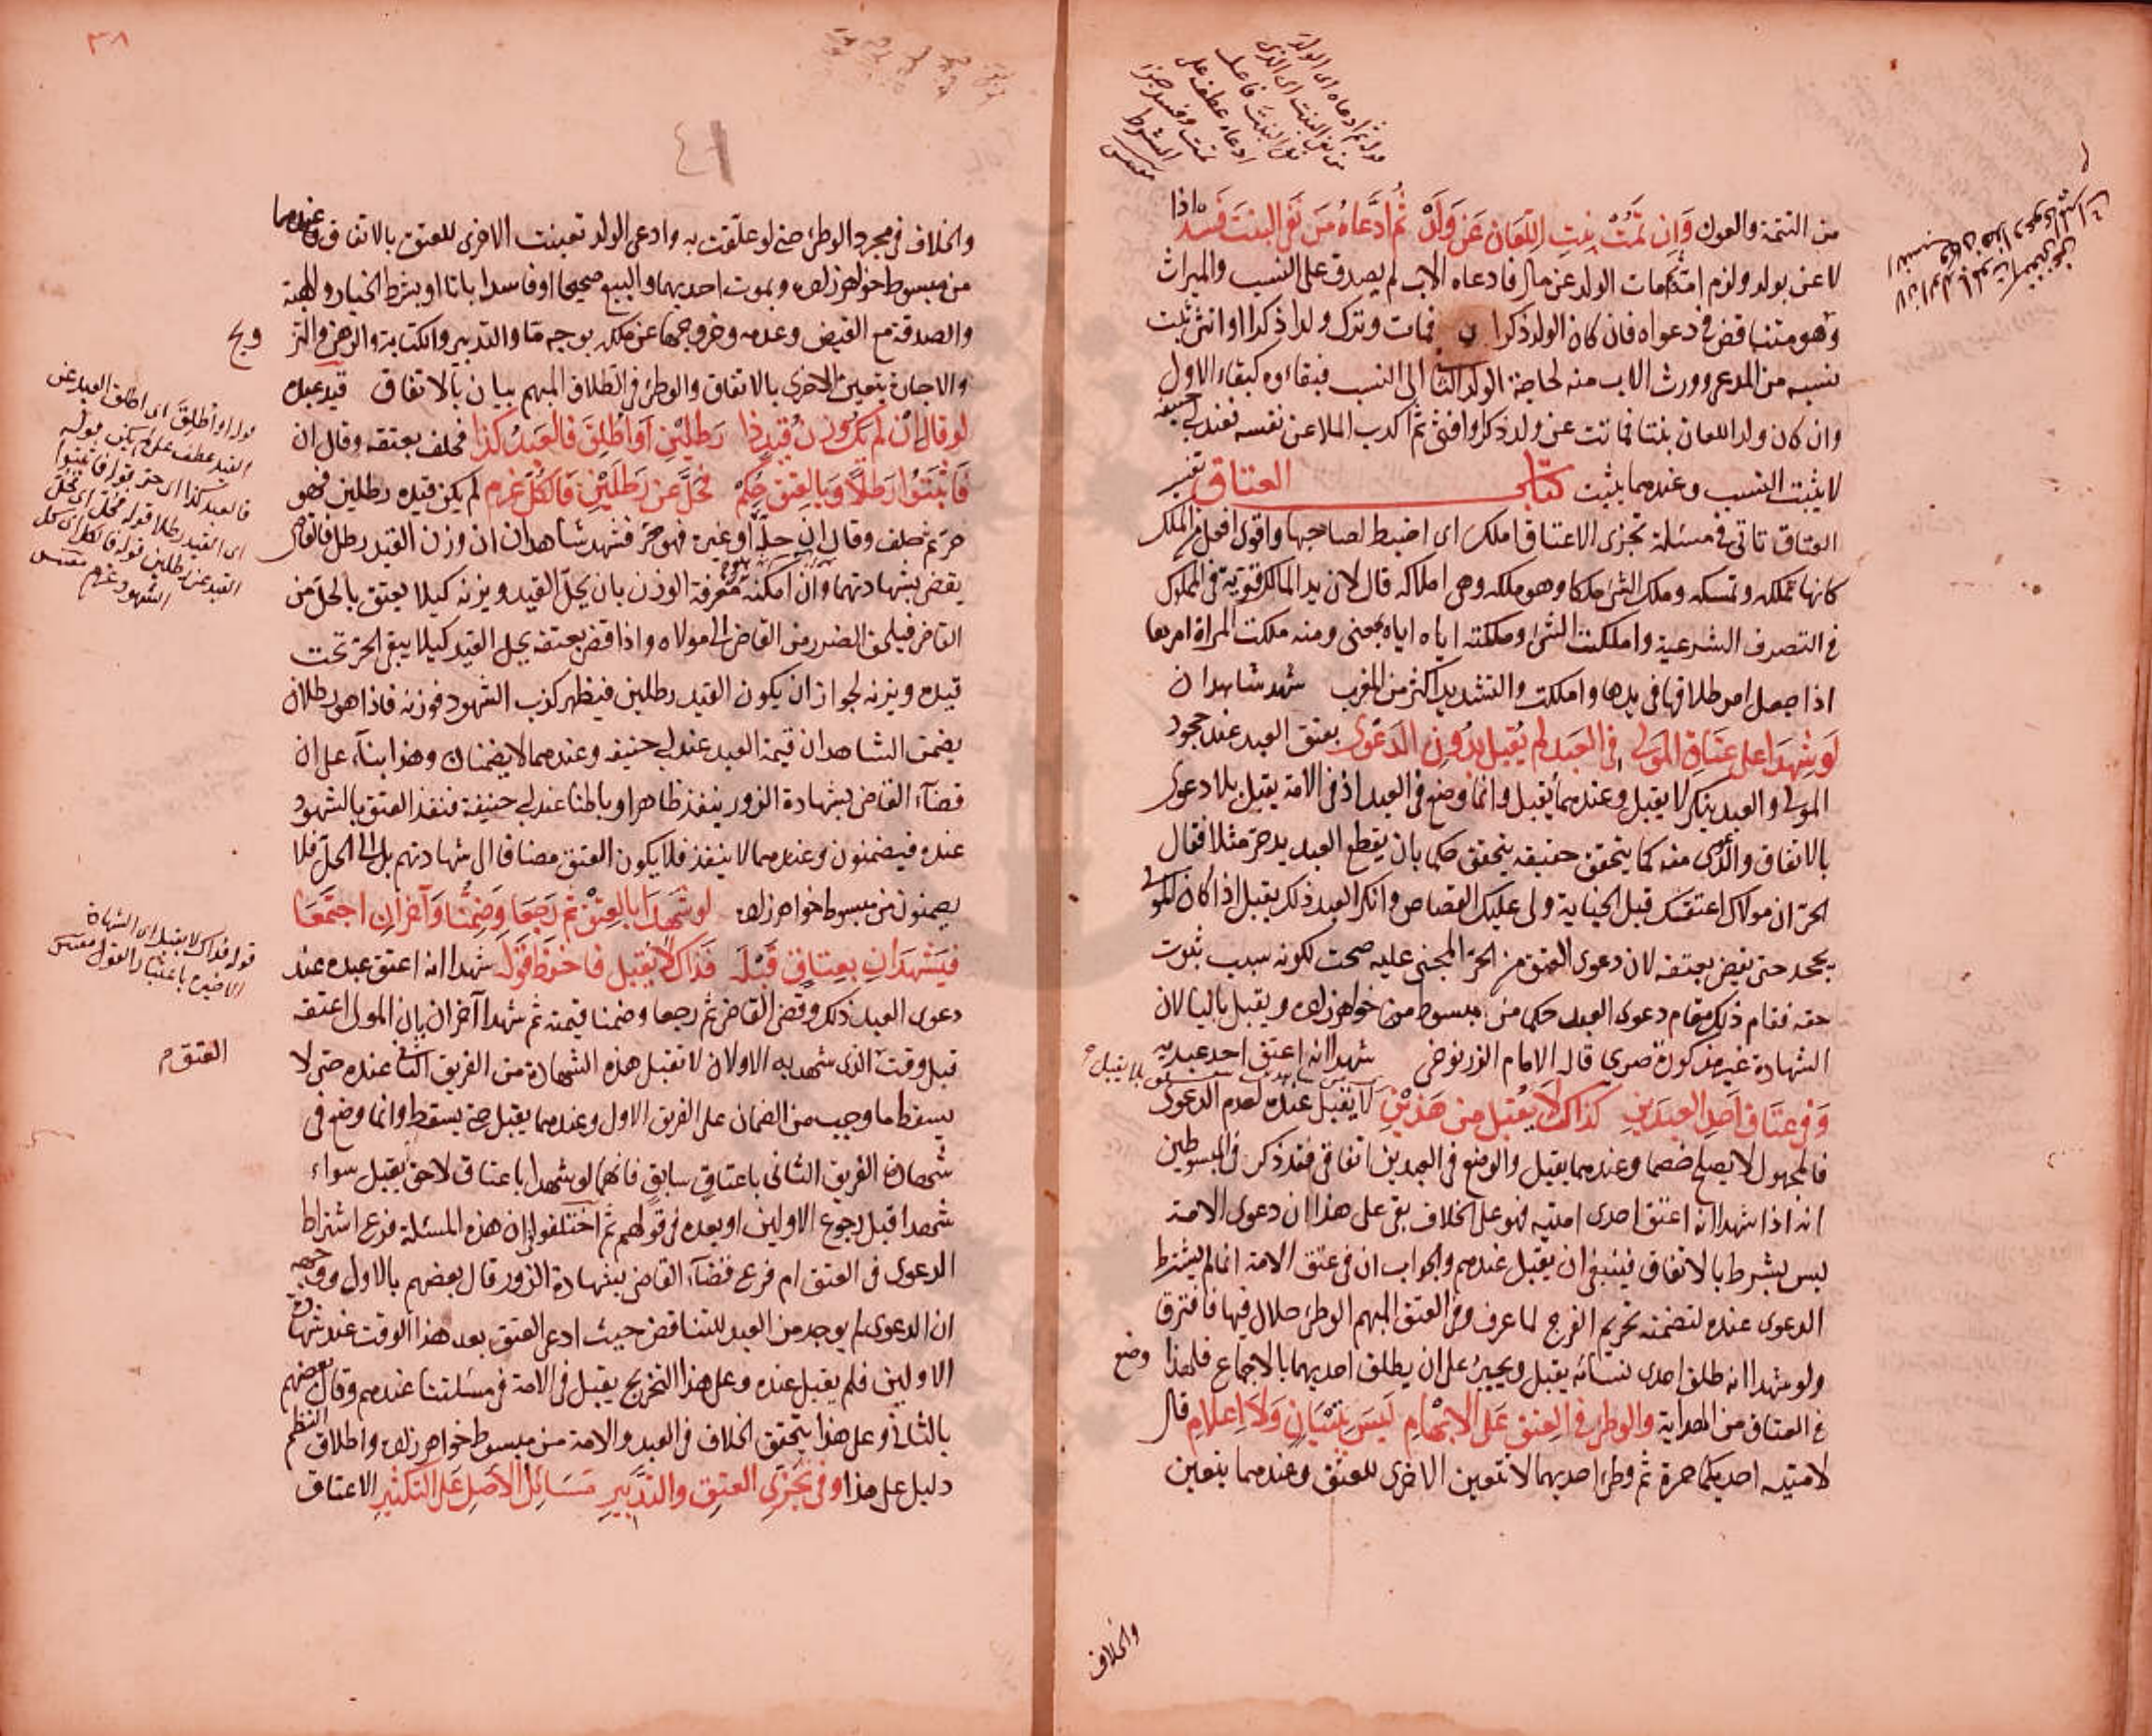 من التتمة والعون وَإِن تَمَّتْ بِنتِ اللِّعَان عَن وَلَدْ ثُم ادَّعاهُ مَن نَفَى البِنتَ فَسَدْ اذا
لاعن بولد ولزم امّه فمات الولد عن مال فادعاه الاب لم يصدق على النسب والميراث
وهو متناقض في دعواه فان كان الولد ذكرا فمات وترك ولدا ذكرا او انثى ثبت
نسبه من المدعي وورث الاب منه لحاجة الولد الثاني الى النسب فبقاؤه كبقاء الاول
وان كان ولد اللعان بنتا فماتت عن ولد ذكر او انثى ثم اكذب الملاعن نفسه فعند ابي حنيفة
لا يثبت النسب وعندهما يثبت كتاب العتاق تفسير
العتاق تاتي في مسئلة تجزى الاعتاق املك اى اضبط لصاحبها واقوى افعل من الملك
كانها تملكه وتمسكه وملك الشئ ملكا وهو ملكه وهى املاكه قال لان يد المالك قوية في المملوك
في التصرف الشرعية واملكت الشئ وملكته اياه اياه بمعنى ومنه ملكت المراة امرها
اذا جعل امر طلاقها في يدها واملكت والتشديد اكثر من المغرب شهد شاهدان
لَو شَهِدَا على عَتَاقِ المَولى فى العَبدِ لم يُقبل بدُونِ الدَّعوى بعتق العبد عند جحود
المولى والعبد ينكر لا يقبل وعندهما يقبل وانما وضع في العبد اذ في الامة يقبل بلا دعوى
بالاتفاق والدعوى منه كما يتحقق حقيقة يتحقق حكما بان يقطع العبد يد حر مثلا فقال
الحر ان مولاك اعتقك قبل الجناية ولى عليك القصاص وانكر العبد ذلك يقبل اذا كان المولى
يجحد حتى يقضى بعتقه لان دعوى العتق من الحر المجنى عليه صحت لكونه سبب ثبوت
حقه فقام ذلك مقام دعوى العبد حكما من مبسوط خواهرزاده ويقبل بالبيان لان
الشهادة غير مذكورة صرى قاله الامام الزرنوخى شهدا انه اعتق احد عبديه
وَفي عتَاق اَحدِ العبدَينِ كذَاك لَا يُقبَل من هَذَيْنِ لا يقبل عنده لعدم الدعوى
فالمجهول لا يصلح خصما وعندهما يقبل والوضع في العبدين اتفاقى فقد ذكر في المبسوطين
انه اذا شهدا انه اعتق احدى امتيه فهو على الخلاف بقى على هذا ان دعوى الامة
ليس بشرط بالاتفاق فينبغى ان يقبل عندهم والجواب ان في عتق الامة انما لم يشترط
الدعوى عنده لتضمنه تحريم الفرج لما عرف وفي العتق المبهم الوطئ حلال فيها فافترق
ولو شهدا انه طلق احدى نسائه يقبل ويجبر على ان يطلق احديهما بالاجماع فلهذا وضع
في العتاق من الهداية والوطئ في العِتق عَلى الابْهَامِ لَيسَ بتِبْيَانٍ وَلا اِعلامِ قال
لامتيه احديكما حرة ثم وطئ احديهما لا تتعين الاخرى للعتق وعندهما يتعين
والخلاف
قوله ثم ادعاه اى الولد
من نفى البنت اى الذى
نفى البنت فاعل
ادعاه عطف على
تمت وفسد جزا
الشرط
٣٨
٤١
والخلاف في مجرد الوطئ حتى لو علقت به وادعى الولد تعينت الاخرى للعتق بالاتفاق وعندهما
من مبسوط خواهرزاده وبموت احديهما والبيع صحيحا او فاسدا باتا او بشرط الخيار والهبة
والصدقة مع القبض وعدمه وخروجها عن ملكه بوجه ما والتدبير والكتابة والرهن والتز ويج
والاجارة يتعين الاخرى بالاتفاق والوطئ في الطلاق المبهم بيان بالاتفاق قيد عبده
لو قال اِنْ لم يَكُ وَزن قَيدِ ذا رَطلَيْنِ اَو اُطلِقَ فالعَبدُ كذا فحلف بعتقه وقال ان
فَاثبتُوا رَطلًا وَبالعِتق حُكِمْ فحَلَّ عن رَطلَيْنِ فَالكُلّ غَرِم لم يكن قيده رطلين فهو
حر ثم حلف وقال ان حلّه او غيره فهو حر فشهد شاهدان ان وزن القيد رطل فالقاضى
يقضى بشهادتهما وان امكنه معرفة الوزن بان يحل القيد ويزنه كيلا يعتق بالحل من
القاضى فيلحق الضرر من القاضى الى مولاه واذا قضى بعتقه يحل القيد كيلا يبقى الحر تحت
قيده ويزنه لجواز ان يكون القيد رطلين فيظهر كذب الشهود فوزنه فاذا هو رطلان
يضمن الشاهدان قيمة العبد عند ابي حنيفه وعندهما لا يضمنان وهذا بناء على ان
قضآء القاضى بشهادة الزور ينفذ ظاهرا وباطنا عند ابي حنيفة فنفذ العتق بالشهود
عنده فيضمنون وعندهما لا ينفذ فلا يكون العتق مضافا الى شهادتهم بل الى الحل فلا
يضمنون من مبسوط خواهرزاده لو شَهِدَا بالعِتقْ ثم رَجَعا وَضمِنَا وَآخَرانِ اجتَمَعَا
فَيَشهَدَانِ بِعِتاقٍ قَبْلَه فَذاك لا يُقبل فاحفَظ قَولَه شهدا انه اعتق عبده عند
دعوى العبد ذلك وقضى القاضى ثم رجعا وضمنا قيمته ثم شهدا آخران بان المولى اعتقه
قبل وقت الذى شهد به الاولان لا تقبل هذه الشهادة من الفريق الثانى عنده حتى لا
يسقط ما وجب من الضمان على الفريق الاول وعندهما يقبل حتى يسقط وانما وضع في
شهادة الفريق الثانى باعتاق سابق فانهما لو شهدا باعتاق لاحق يقبل سواء
شهدا قبل رجوع الاولين او بعده في قولهم ثم اختلفوا ان هذه المسئلة فرع اشتراط
الدعوى في العتق ام فرع قضآء القاضى بشهادة الزور قال بعضهم بالاول ووجهه
ان الدعوى لم يوجد من العبد للتناقض حيث ادعى العتق بعد هذا الوقت عند شهادة
الاولين فلم يقبل عنده وعلى هذا التخريج يقبل في الامة في مسئلتنا عندهم وقال بعضهم
بالثانى وعلى هذا يتحقق الخلاف في العبد والامة من مبسوط خواهرزاده واطلاق النظم
دليل على هذا وفى تَجَزّى العِتقِ والتدبِيرِ مَسَائِل الأصلِ عَلى التكثير الاعتاق
قوله او اطلق اى اطلق العبد عن
القيد عطف على لم يكن قوله
فالعبد كذا اى حر قوله فاثبتوا
اى القيد رطلا قوله فحل اى فحل
القيد عن رطلين قوله فالكل اى كل
الشهود غرم
قوله فذاك لا يقبل اى الشهادة
الاخيرة باعتبار القول
العتق م